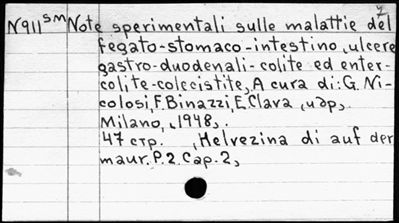 N911 SM Note sperimentali sulle malattie del
fegato-stomaco-intestino, ulcere
gastro-duodenali-colite ed enter-
colite-colecistite, A cura di: G. Ni-
colosi, F. Binazzi, E. Clava, udp,
Milano, 1948,.
47 стр. , Helvezina di auf der
maur. P. 2. Cap. 2,